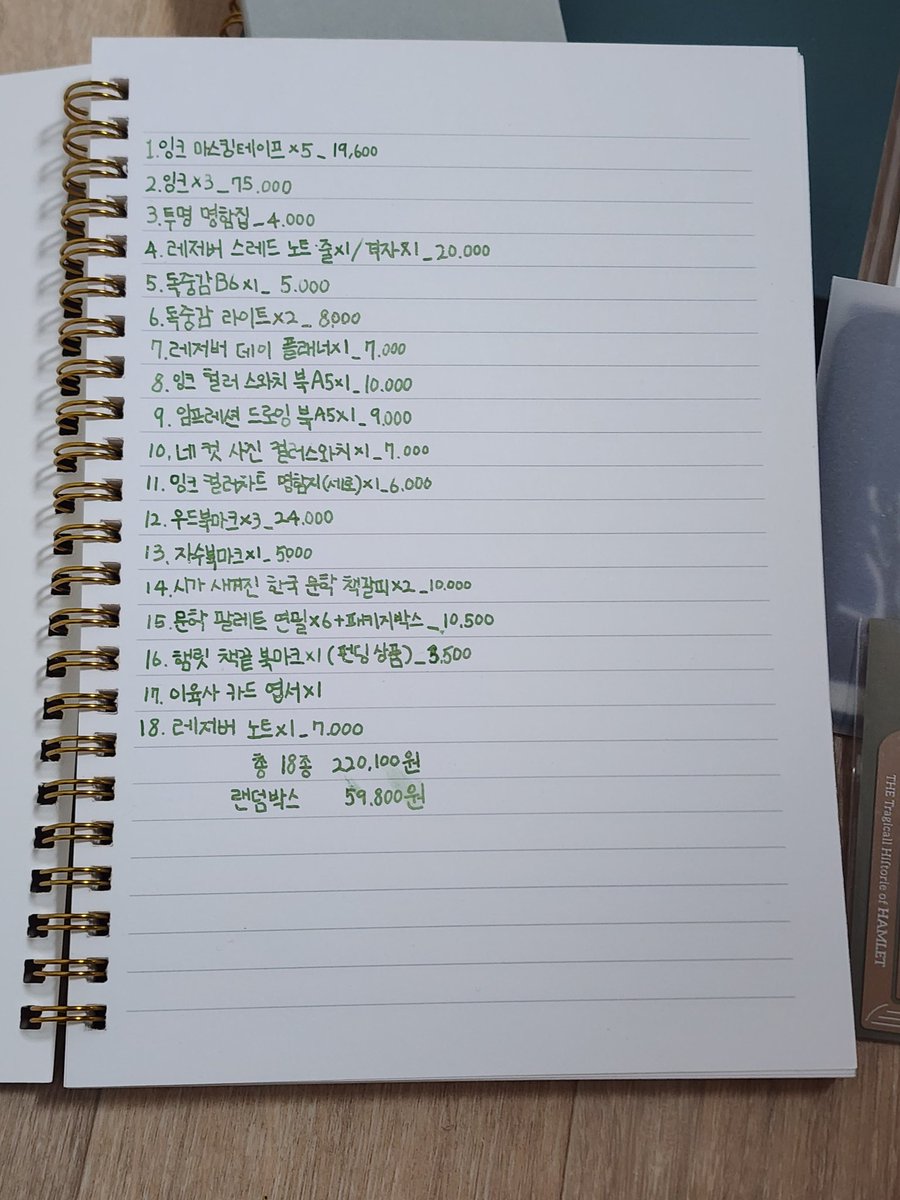 1.잉크 마스킹테이프×5_ 19,600
2.잉크×3_75.000
3.투명 명함집_4.000
4.레저버 스레드 노트·줄×1/격자×1_20.000
5.독중감B6×1_ 5.000
6.독중감 라이트×2_ 8.000
7.레저버 데이 플래너×1_7.000
8.잉크 컬러 스와치 북A5×1_10.000
9.임프레션 드로잉 북A5×1_9.000
10.네 컷 사진 컬러스와치×1_7.000
11.잉크 컬러차트 명함지(세로)×1_6.000
12.우드북마크×3_24.000
13.자수북마크×1_5.000
14.시가 새겨진 한국 문학 책갈피×2_10.000
15.문학 팔레트 연필×6+패키지박스_10.500
16.햄릿 책끝 북마크×1(펀딩상품)_3.500
17.이육사 카드 엽서×1
18.레저버 노트×1_7.000
총 18종 220,100원
랜덤박스 59.800원
THE Tragicall Hiſtorie of HAMLET